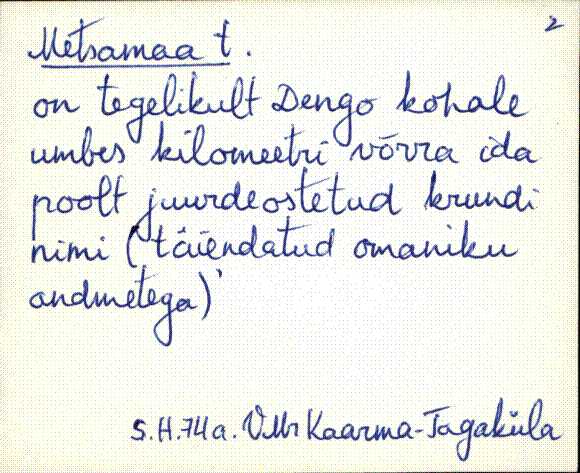 2
Metsamaa t.
on tegelikult Dengo kohale
umbes kilomeetri võrra ida
poolt juurdeostetud krundi
nimi (täiendatud omaniku
andmetega)
S.H.74a. VMr Kaarma-Tagaküla